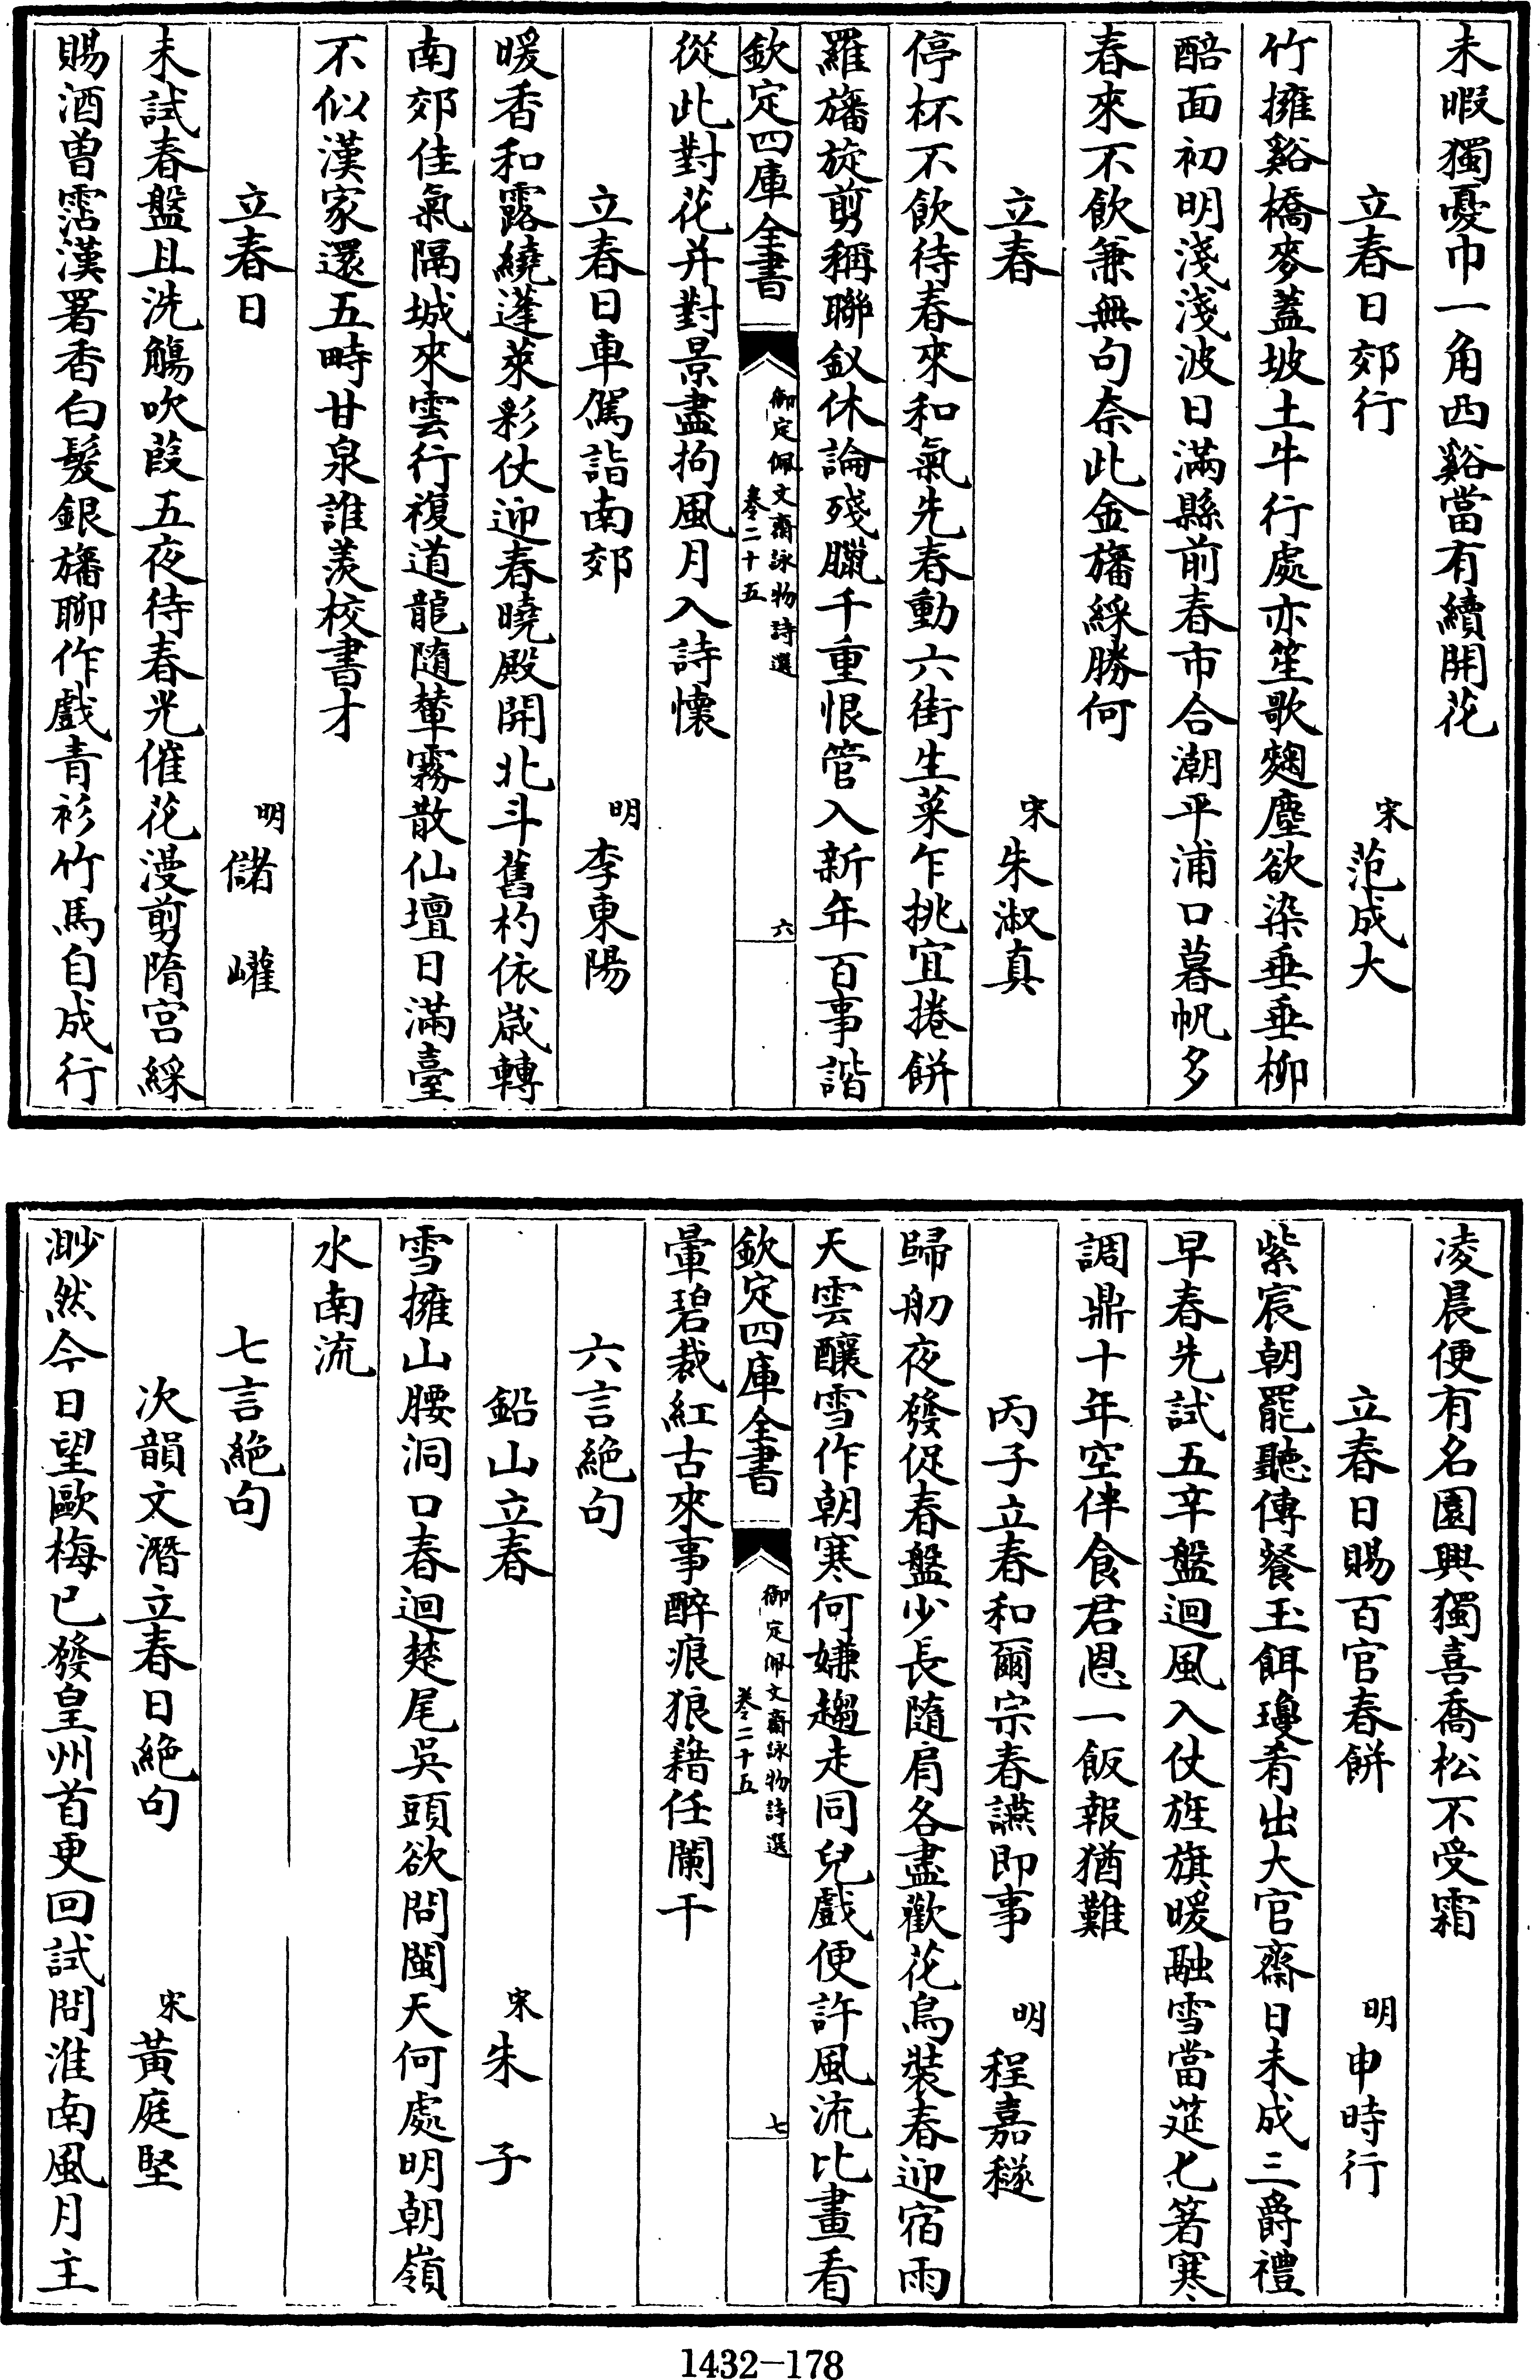 未暇獨憂巾一角西谿當有續開花
立春日郊行 宋 范成大
竹擁谿橋麥蓋坡土牛行處亦笙歌麴塵欲染垂垂柳
醅面初明淺淺波日滿縣前春市合潮平浦口暮帆多
春來不飲兼無句奈此金旛綵勝何
立春 宋 朱淑真
停杯不飲待春來和氣先春動六街生菜乍挑宜捲餅
羅旛旋剪稱聯釵休論殘臘千重恨管入新年百事諧
欽定四庫全書 御定佩文齋詠物詩選 卷二十五 六
從此對花并對景盡拘風月入詩懷
立春日車駕詣南郊 明 李東陽
暖香和露繞蓬萊彩仗迎春曉殿開北斗舊杓依歲轉
南郊佳氣隔城來雲行複道龍隨輦霧散仙壇日滿臺
不似漢家還五畤甘泉誰羨校書才
立春日 明 儲巏
未試春盤且洗觴吹葭五夜待春光催花漫剪隋宮綵
賜酒曾霑漢署香白髮銀旛聊作戲青衫竹馬自成行
凌晨便有名園興獨喜喬松不受霜
立春日賜百官春餅 明 申時行
紫宸朝罷聽傳餐玉餌瓊肴出大官齋日未成三爵禮
早春先試五辛盤迴風入仗旌旗暖融雪當筵匕箸寒
調鼎十年空伴食君恩一飯報猶難
丙子立春和爾宗春讌即事 明 程嘉燧
歸舠夜發促春盤少長隨肩各盡歡花鳥裝春迎宿雨
天雲釀雪作朝寒何嫌趨走同兒戲便許風流比畫看
欽定四庫全書 御定佩文齋詠物詩選 卷二十五 七
暈碧裁紅古來事醉痕狼藉任闌干
六言絶句
鉛山立春 宋 朱子
雪擁山腰洞口春迴楚尾吳頭欲問閩天何處明朝嶺
水南流
七言絶句
次韻文潛立春日絶句 宋 黃庭堅
渺然今日望歐梅已發皇州首更回試問淮南風月主
1432-178